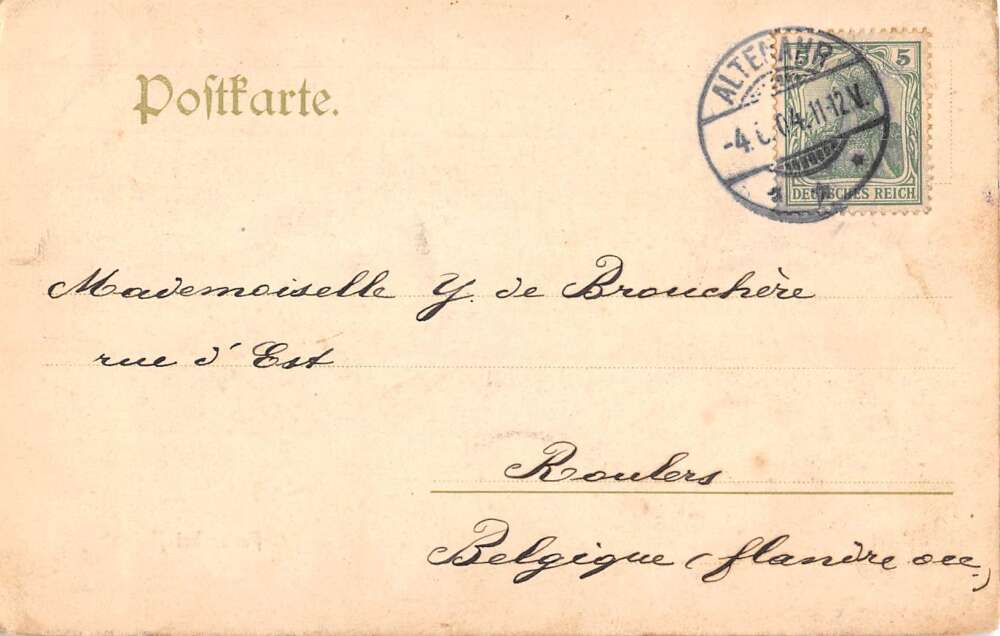 Postkarte.
ALTENAHR
-4. 6. 04. 11-12 V.
5 5
DEUTSCHES REICH
Mademoiselle Y. de Brouchère
rue d'Est
Roulers
Belgique (flandre occ.)